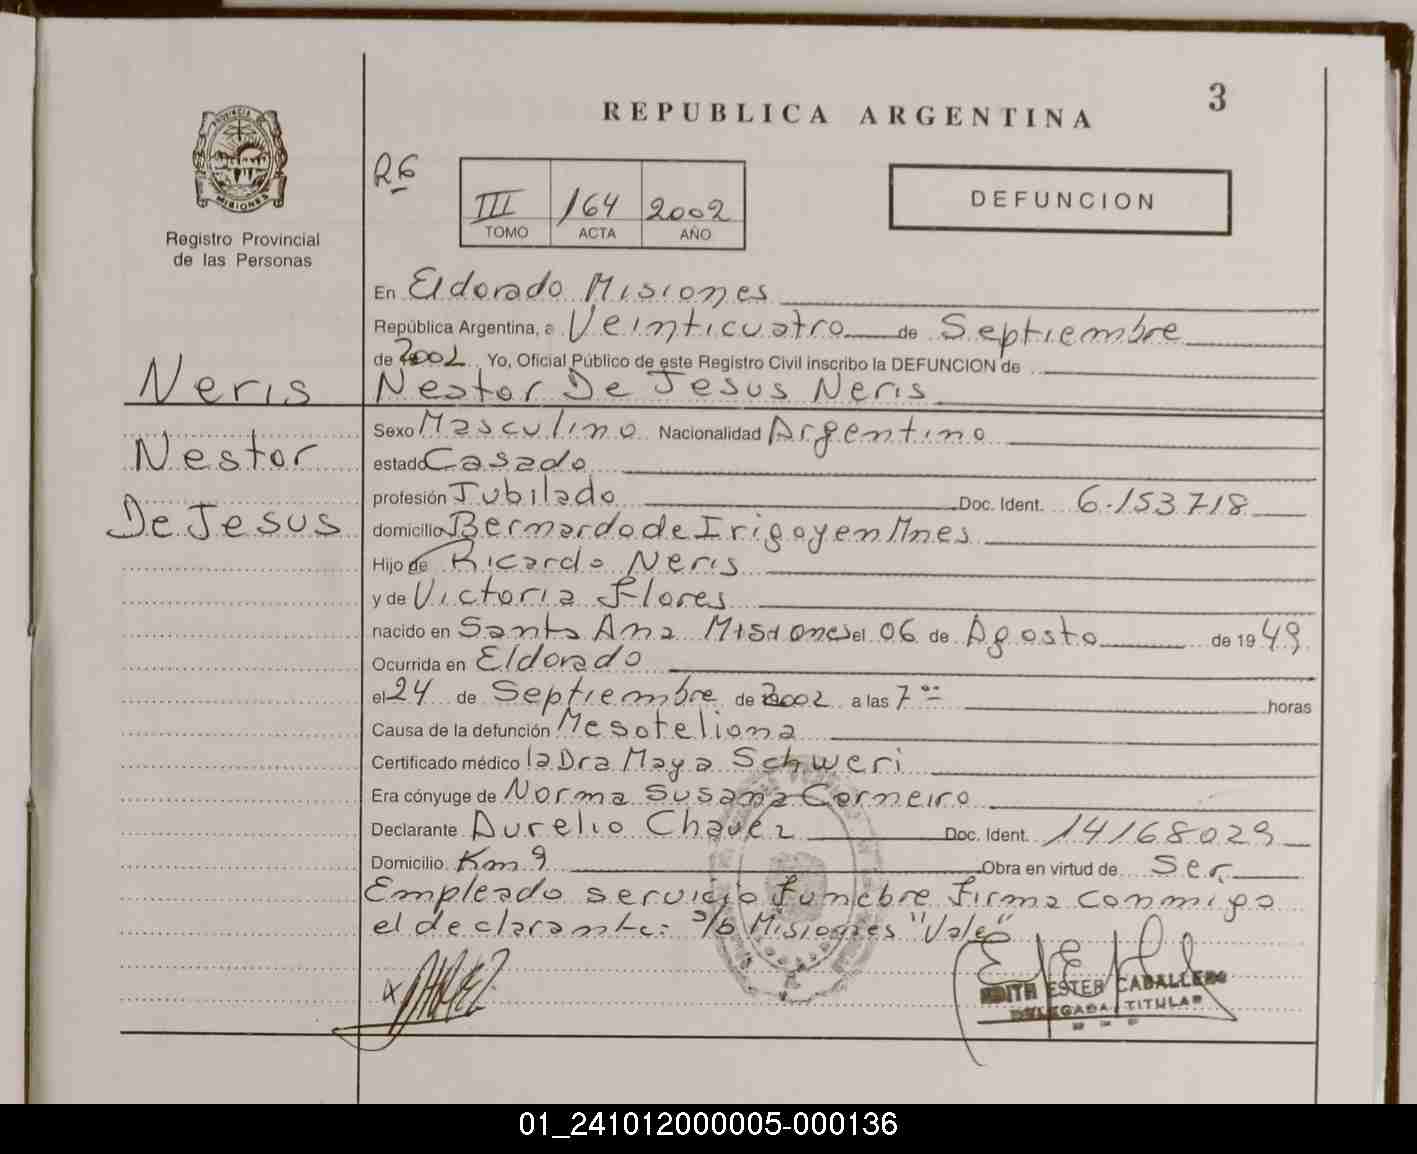 REPUBLICA ARGENTINA
3
PROVINCIA DE
MISIONES
Registro Provincial
de las Personas
R6
III 164 2002
TOMO ACTA AÑO
DEFUNCION
En Eldorado Misiones
República Argentina, a Veinticuatro de Septiembre
de 2002 Yo, Oficial Público de este Registro Civil inscribo la DEFUNCION de
Neris
Nestor De Jesus Neris
Sexo Masculino Nacionalidad Argentino
Nestor
estado Casado
profesión Jubilado Doc. Ident. 6.153.718
De Jesus
domicilio Bernardo de Irigoyen Mnes
Hijo de Ricardo Neris
y de Victoria Flores
nacido en Santa Ana Misiones el 06 de Agosto de 1949
Ocurrida en Eldorado
el 24 de Septiembre de 2002 a las 7 00 horas
Causa de la defunción Mesoteliona
Certificado médico la Dra Maya Schweri
Era cónyuge de Norma Susana Corneiro
Declarante Aurelio Chavez Doc. Ident. 14168029
Domicilio Km 9 Obra en virtud de Ser
Empleado servicio funebre firma conmigo
el declarante: s/b Misiones "Vale"
EDITH ESTER CABALLERO
DELEGADA TITULAR
01_241012000005-000136